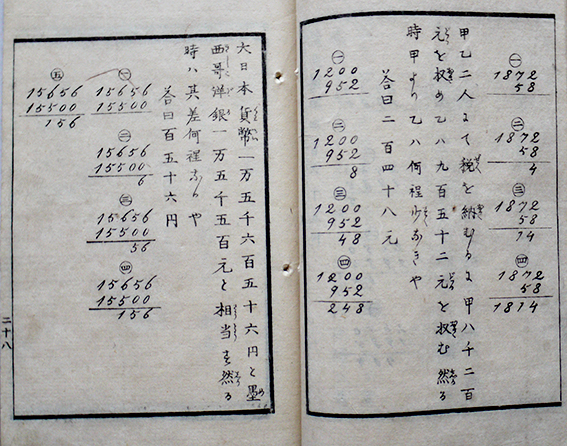 ㊀
1872
58
㊁
1872
58
4
㊂
1872
58
14
㊃
1872
58
1814
甲乙二人にて税を納むるに甲ハ千二百
元を収め乙ハ九百五十二元を収む然る
時甲より乙ハ何程少なきや
答曰二百四十八元
㊀
1200
952
㊁
1200
952
8
㊂
1200
952
48
㊃
1200
952
248
大日本貨幣一万五千六百五十六円と墨
西哥洋銀一万五千五百元と相当す然る
時ハ其差何程なるや
答曰百五十六円
㊀
15656
15500
㊁
15656
15500
6
㊂
15656
15500
56
㊃
15656
15500
156
㊄
15656
15500
156
二十八